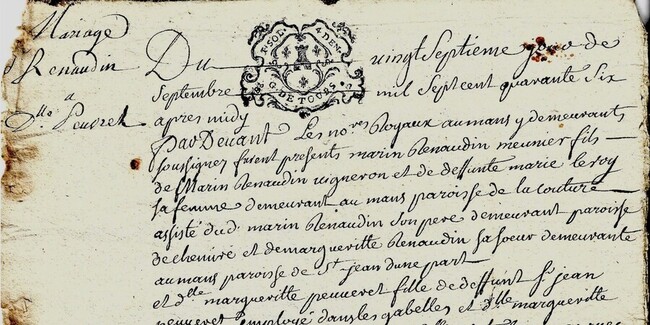 Mariage
Renaudin
a
Dlle Peuvret
1. SOL. 4 DEN.
G. DE TOURS
Du vingt Septieme jour de
Septembre mil Sept cent quarante Six
apres midy
Par Devant Les nores Royaux au mans y demeurants
soussignes furent presents marin Renaudin meunier fils
de Marin Renaudin vigneron et de deffunte marie leroy
sa femme demeurant au mans paroisse de la couture
assisté dud. marin Renaudin son pere demeurant paroisse
de cheniré et demargueritte Renaudin sa soeur demeurante
au mans paroisse de st jean dune part
et dlle margueritte peuveret fille de deffunt sr jean
peuveret employé dans les gabelles et dlle margueritte